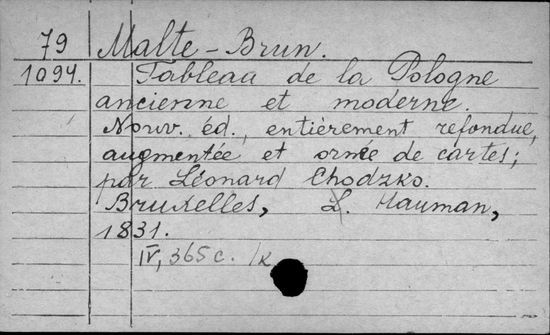 79 Malte-Brun.
1094. Tableau de la Pologne
ancienne et moderne.
Nouv. éd., entièrement refondue,
augmentée et ornée de cartes;
par Léonard Chodzko.
Bruxelles, L. Hauman,
1831.
IV, 365 c. /к